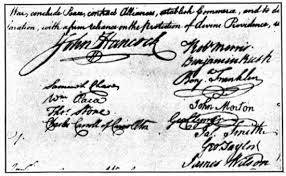 War, conclude Peace, contract Alliances, establish Commerce, and to do
ration, with a firm reliance on the Protection of divine Providence, we
John Hancock
Robt Morris
Benjamin Rush
Benj. Franklin
Samuel Chase
Wm Paca
Thos. Stone
Charles Carroll of Carrollton
John Morton
Geo Clymer
Jas. Smith
Geo. Taylor
James Wilson